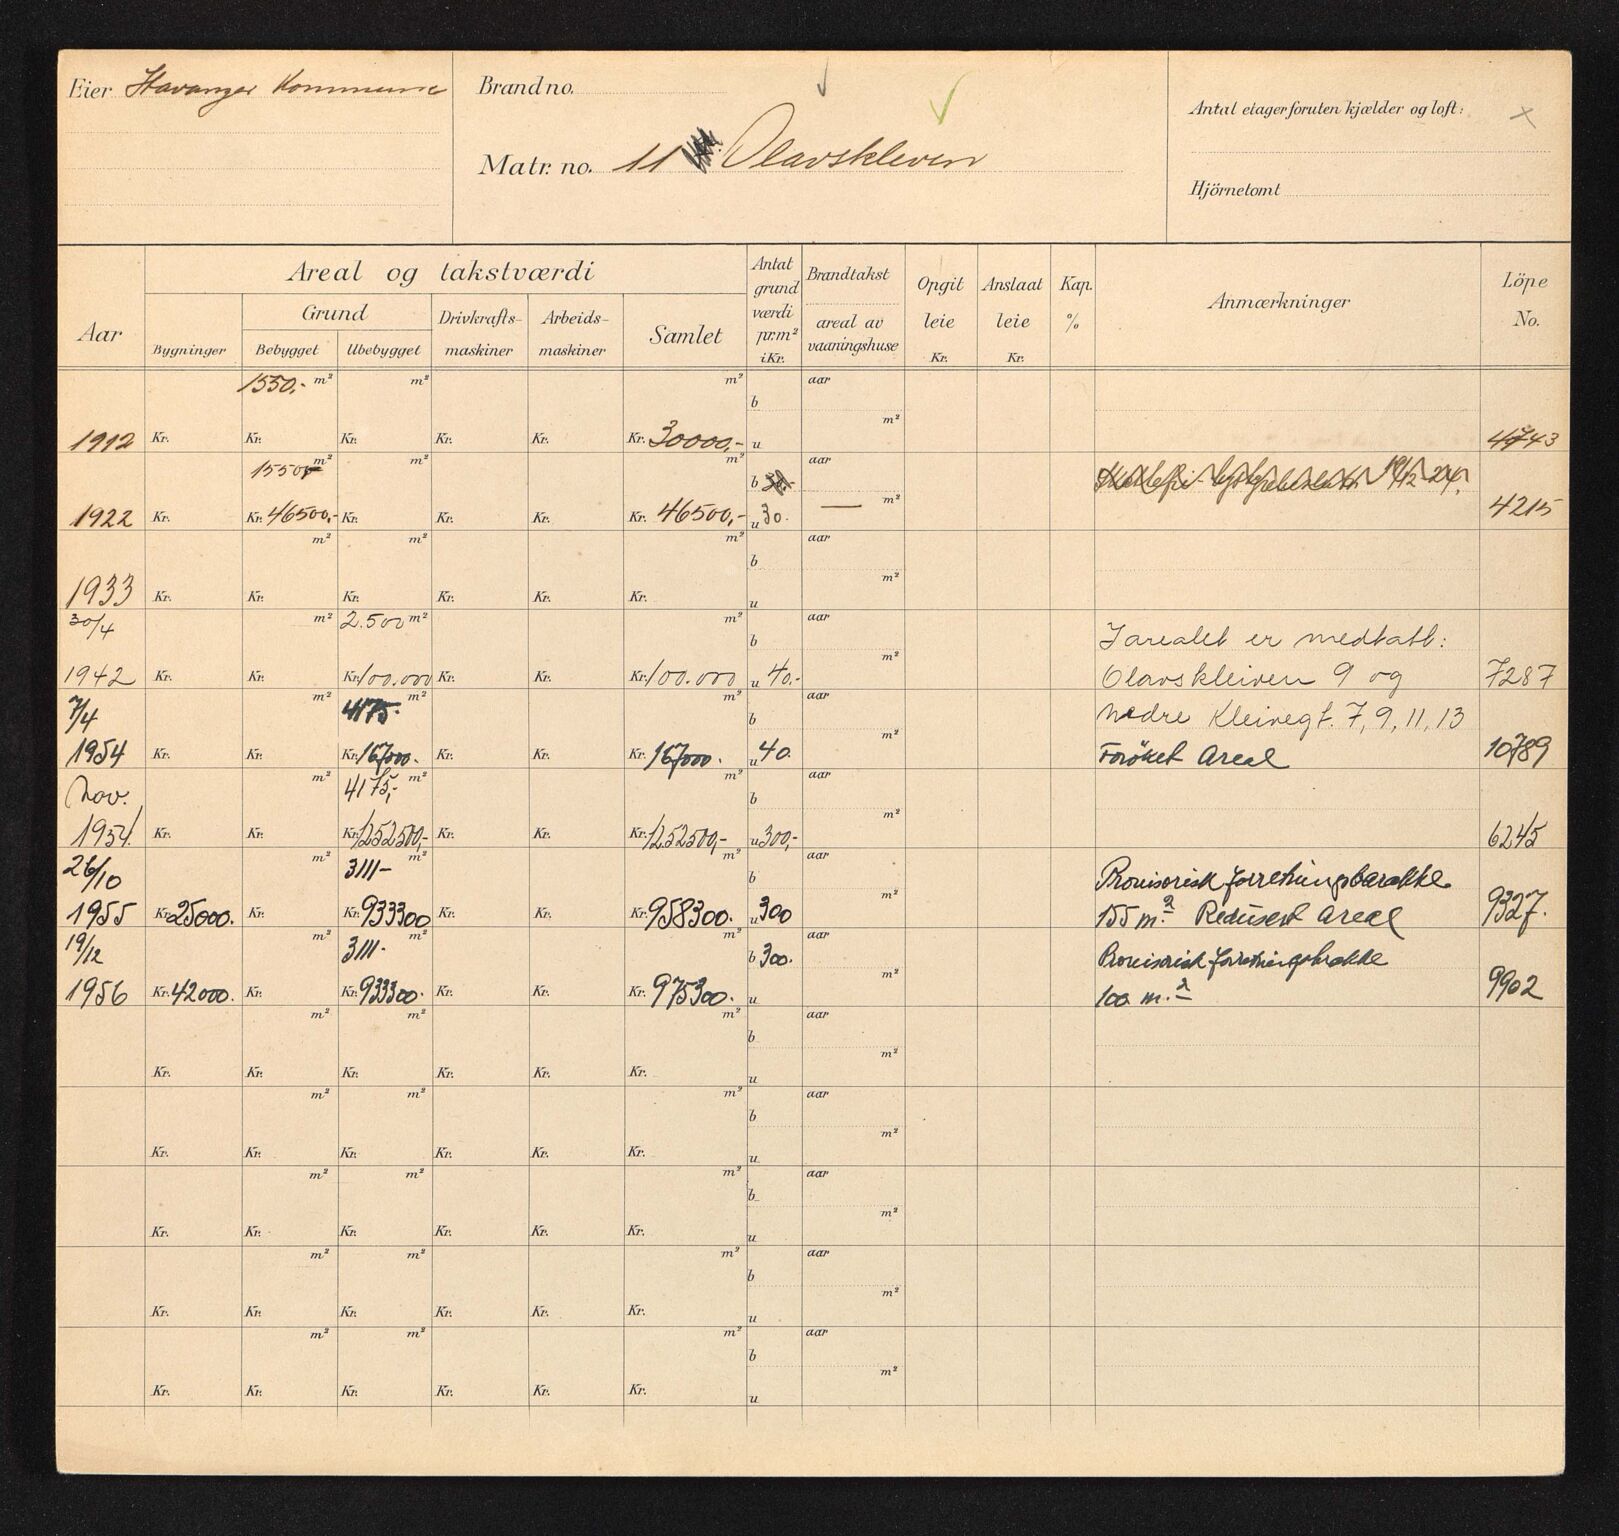 Eier Stavanger Kommune
Brand no.
Matr. no. 11 Olavskleven
Antal etager foruten kjælder og loft:
Hjörnetomt
Aar
Areal og takstværdi
Bygninger
Grund
Bebygget Ubebygget
Drivkrafts-maskiner
Arbeids-maskiner
Samlet
Antat grund værdi pr. m² i Kr.
Brandtakst
areal av vaaningshuse
Opgit leie Kr.
Anslaat leie Kr.
Kap. %
Anmærkninger
Löpe No.
1550,- m² m² m² b aar m²
1912 Kr. Kr. Kr. Kr. Kr. Kr. 30000,- u 4743
1550 m² m² m² b aar 19/12 24.
1922 Kr. Kr. 46500,- Kr. Kr. Kr. Kr. 46500,- u 30. — m² 4215
m² m² m² b aar m²
1933 Kr. Kr. Kr. Kr. Kr. Kr. u
30/4 m² 2.500 m² m² b aar m² I arealet er medtatt:
1942 Kr. Kr. Kr. 100.000 Kr. Kr. Kr. 100.000 u 40.- Olavskleiven 9 og 7287
7/4 m² 4175. m² m² b aar m² Nedre Kleivegt. 7, 9, 11, 13
1954 Kr. Kr. Kr. 167000. Kr. Kr. Kr. 167000. u 40. Foröket Areal 10789
Nov. m² 4175,- m² m² b aar m²
1954. Kr. Kr. Kr. 1252500,- Kr. Kr. Kr. 1252500,- u 300,- 6245
26/10 m² 3111- m² m² b aar m² Provisorisk forretningsbarakke
1955 Kr. 25000. Kr. Kr. 933300 Kr. Kr. Kr. 958300. u 300 155 m.² Redusert Areal 9327.
19/12 m² 3111. m² m² b 300. aar m² Provisorisk forretningsbrakke
1956 Kr. 42000. Kr. Kr. 933300. Kr. Kr. Kr. 975300. u 100 m.² 9902
m² m² m² b aar m²
Kr. Kr. Kr. Kr. Kr. Kr. u
m² m² m² b aar m²
Kr. Kr. Kr. Kr. Kr. Kr. u
m² m² m² b aar m²
Kr. Kr. Kr. Kr. Kr. Kr. u
m² m² m² b aar m²
Kr. Kr. Kr. Kr. Kr. Kr. u
m² m² m² b aar m²
Kr. Kr. Kr. Kr. Kr. Kr. u